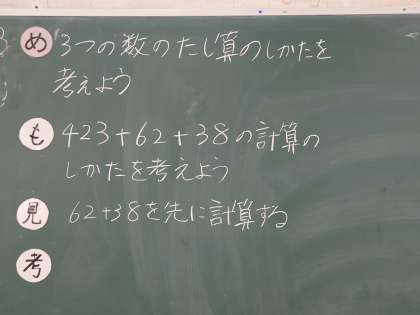 め 3つの数のたし算のしかたを
考えよう
も 423+62+38の計算の
しかたを考えよう
見 62+38を先に計算する
考